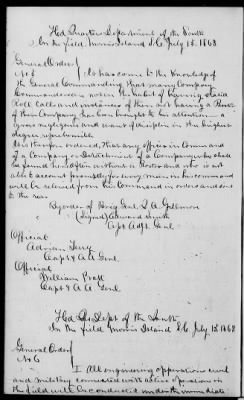 Hd. Quarters Department of the South
In the field, Morris Island S.C. July 15. 1863
General Orders
No 5 It has come to the knowledge of
the General Commanding that many Company
Commanders are in the habit of having
Roll Calls and instances of there not having a Roll
of their Company has been brought to his attention. a
gross neglect and want of discipline in the highest
degree reprehensible.
It is therefore ordered, that any officer in Command
of a Company or Detachment of a Company who shall
be found hereafter without a Roster and who is not
able to account promptly for every man in his command
will be relieved from his Command in orders and sent
to the rear.
By order of Brig Genl. Q. A. Gillmore
(Signed) Edward Smith
Capt Adjt. Genl
Official
Adrian Terry
Capt & A. A. Genl.
Official
William Pratt
Capt & A A Genl.
Hd. Qrs Dept. of the South,
In the field Morris Island S.C. July 15 1863
General Orders
No 6
I All engineering operations civil
and military connected with active operations in
the field will be conducted under the immediate